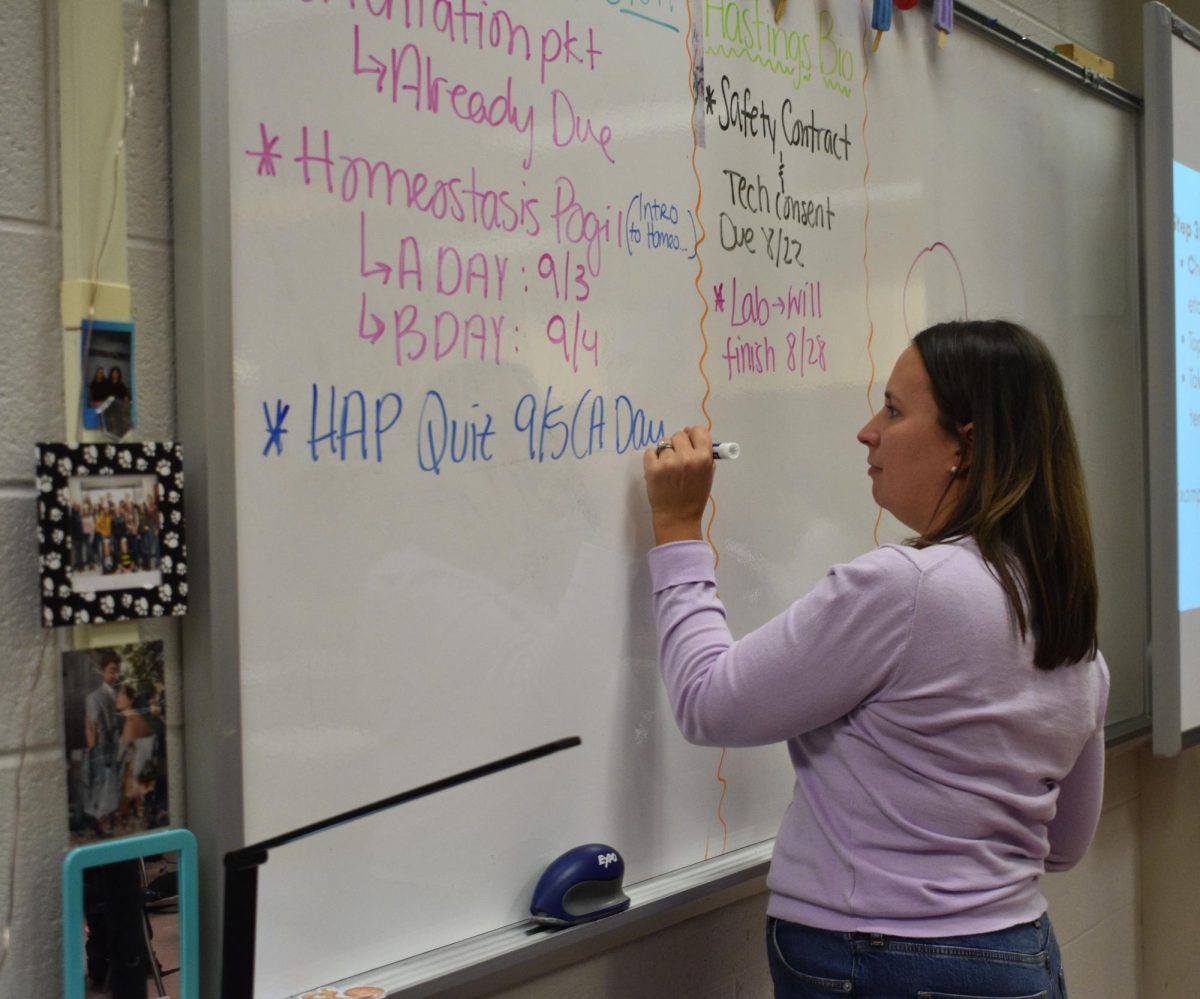 pkt
↳Already Due
* Homeostasis Pogil (Intro
to Homeo...)
↳A DAY: 9/3
↳B DAY: 9/4
* HAP Quiz 9/5 (A Day
Hastings Bio
* Safety Contract
&
Tech Consent
Due 8/22
* Lab → will
finish 8/28
EXPO